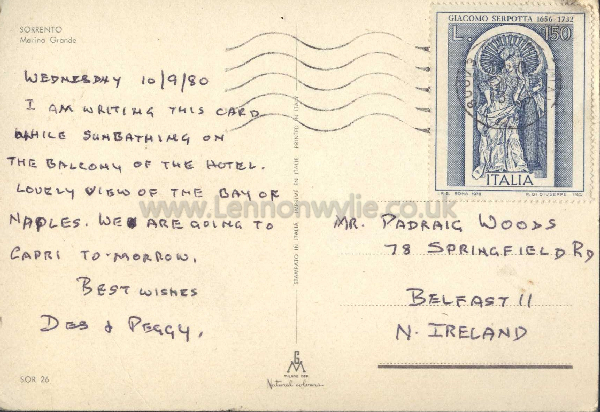 SORRENTO
Marina Grande
WEDNESDAY 10/9/80
I AM WRITING THIS CARD
WHILE SUNBATHING ON
THE BALCONY OF THE HOTEL.
LOVELY VIEW OF THE BAY OF
NAPLES. WE ARE GOING TO
CAPRI TO-MORROW.
BEST WISHES
DES & PEGGY.
SOR 26
GIACOMO SERPOTTA 1656-1732
L. 150
ITALIA
www.Lennonwylie.co.uk
MR. PADRAIG WOODS
78 SPRINGFIELD RD
BELFAST 11
N. IRELAND
Natural colours